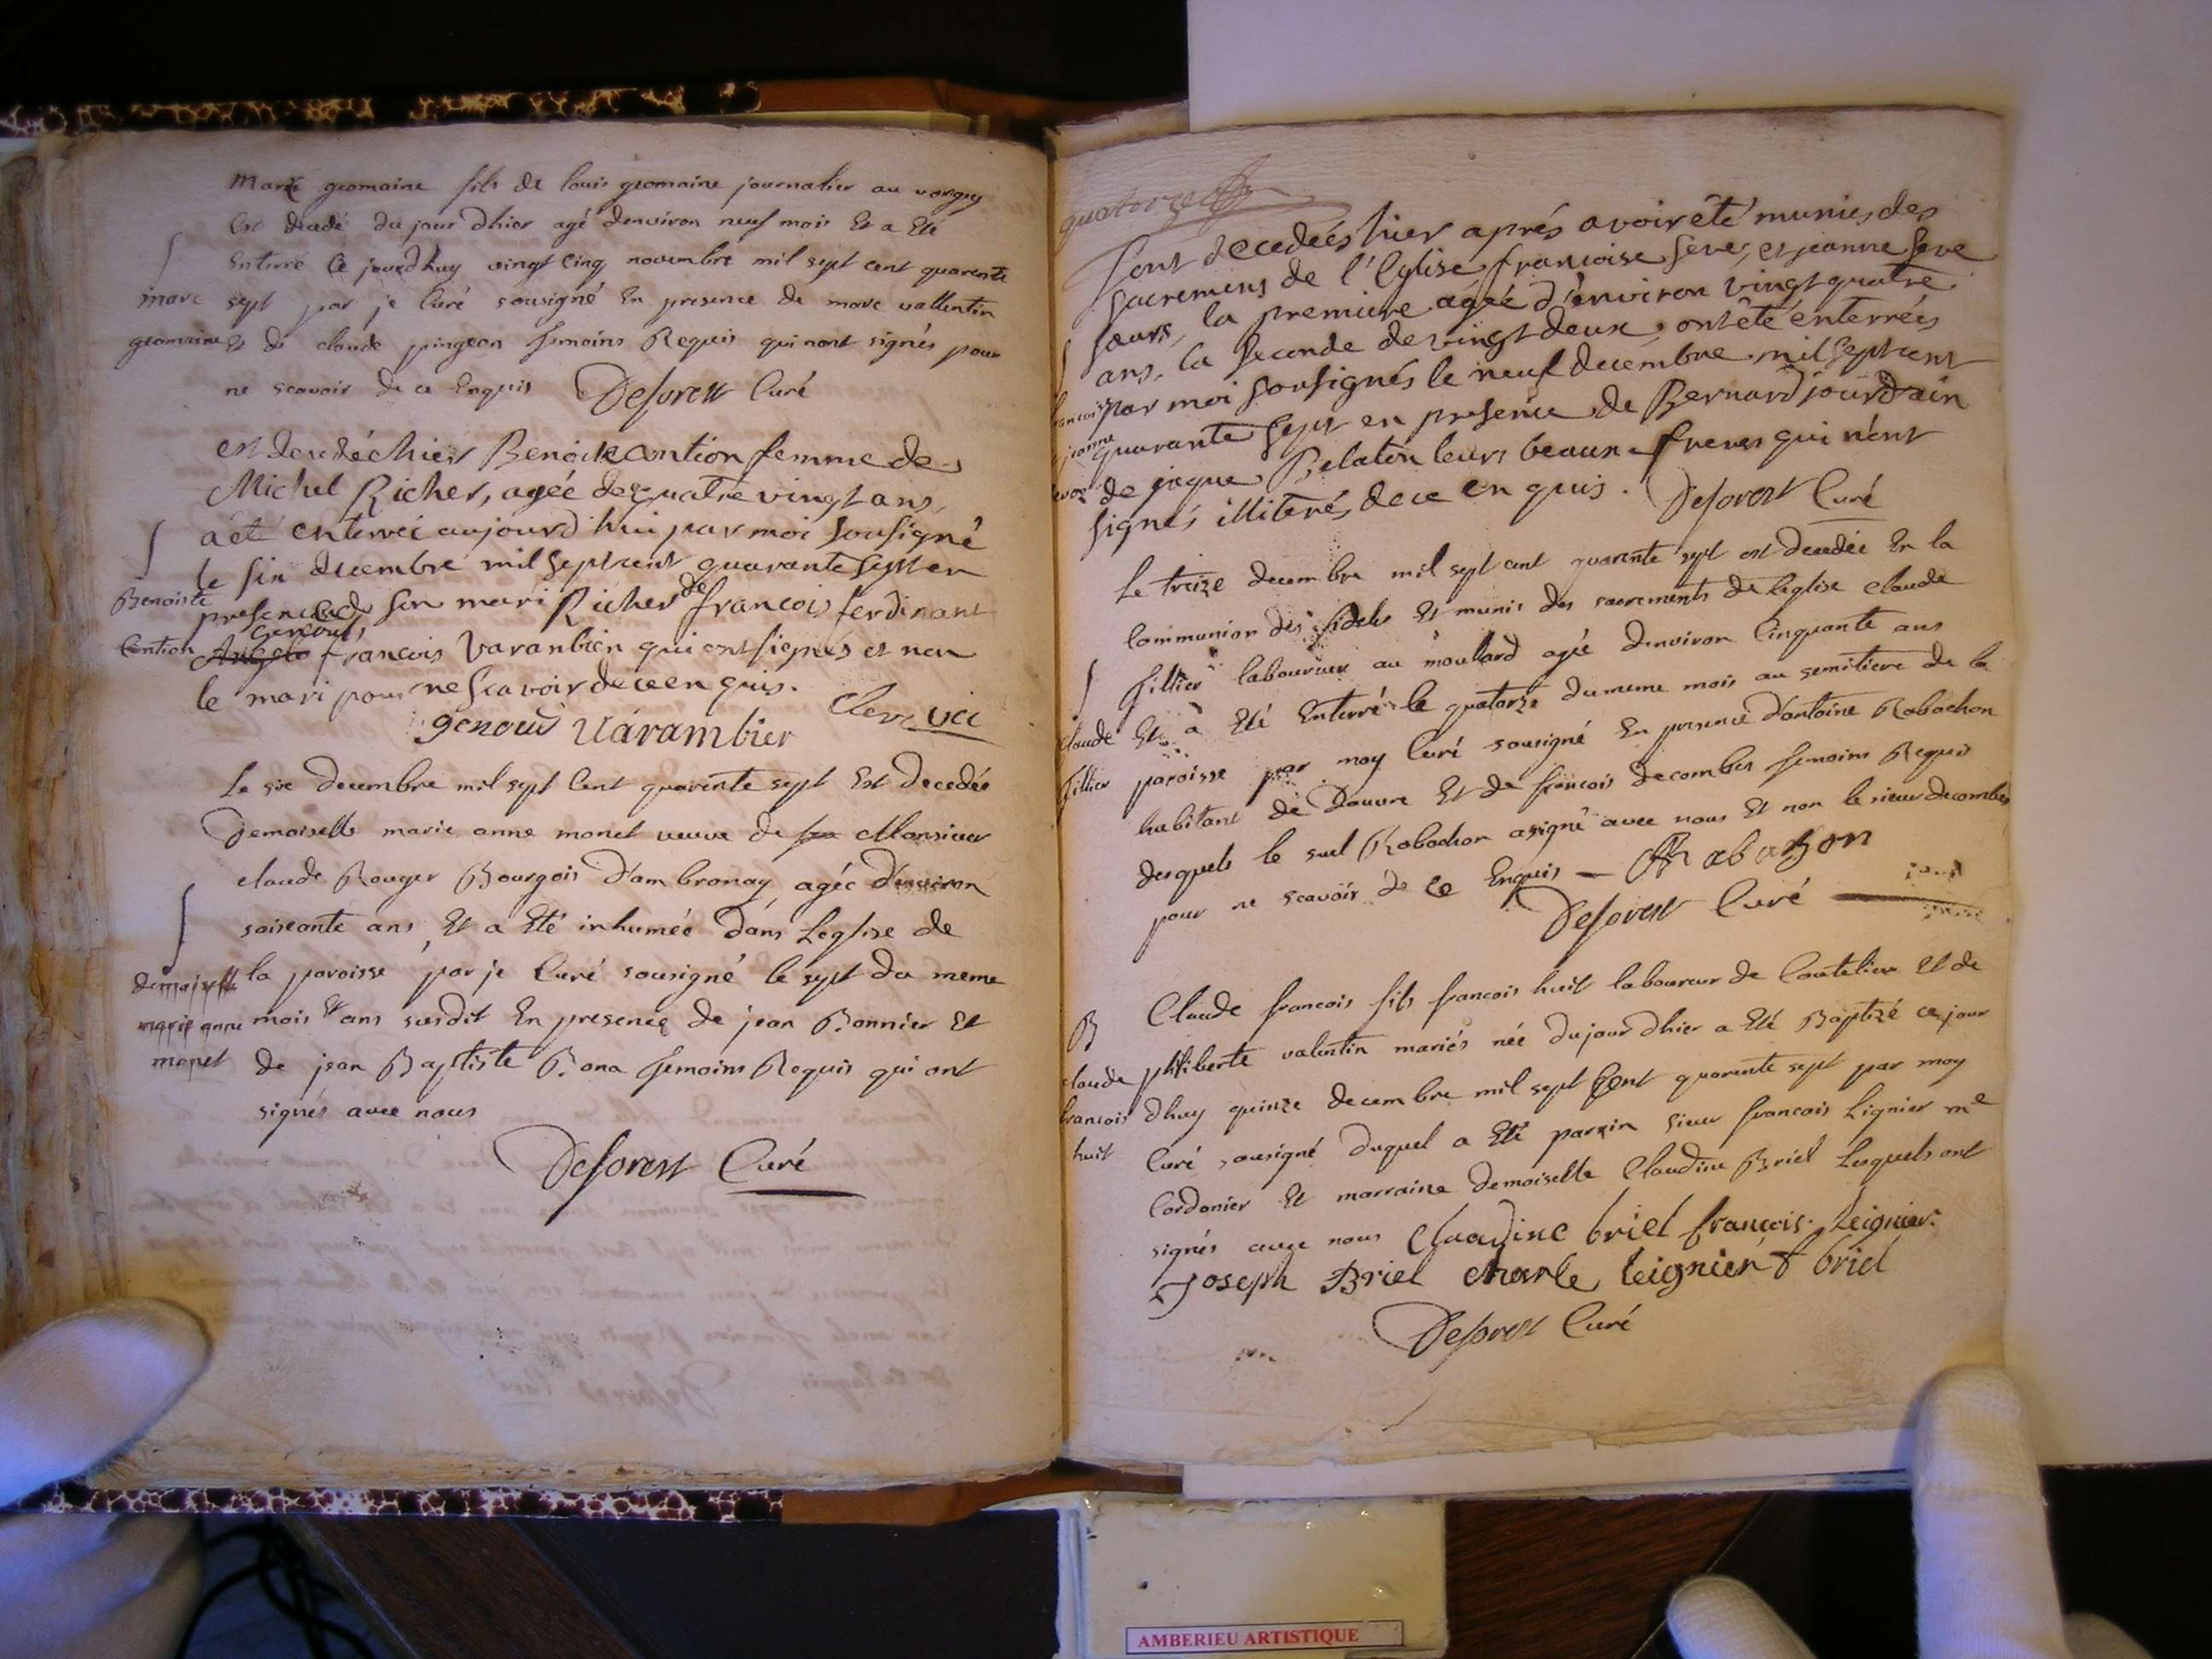 marc geomaine fils de louis geomaine journalier au vorgey
Est decedé du jour dhier agé denviron neuf mois Et a Eté
Enterré Ce jourdhuy vingt cinq novembre mil sept cent quarente
marc
sept par je Curé sousigné En presence de marc vallentin
geomaine
Et de claude pingeon temoins Requis qui nont signés pour
ne scavoir de ce Enquis Deforest Curé
est decedée hier Benoite contion femme de
Michel Richer, agée de quatre vingt ans,
a été enterrei aujourd'hui par moi sousigné
le six decembre mil sept cent quarante sept en
Benoiste
presence de son mari Richer de francois ferdinant
Contion
genoud francois Varanbien qui ont signés et non
le mari pour ne scavoir de ce en quis.
genoud varambier
Le six decembre mil sept Cent quarente sept Est decedée
Demoiselle marie anne monet veuve de Monsieur
claude Rouger Bourgois d'ambronay agée d'environ
soiseante ans, Et a Eté inhumée dans Leglise de
demoiselle
la paroisse par je Curé sousigné le sept du meme
marie anne
mois Et ans susdit En presence de jean Bonnier Et
monet
de jean Baptiste Bona temoins Requis qui ont
signés avec nous
Deforest Curé
quatorze
Sont decedées hier aprés avoir été munies des
sacremens de l'Eglise francoise seve, et jeanne seve
sœurs, la premiere agée d'environ vingt quatre
ans, la seconde de vingt deux, ont été enterrées
par moi sousignés le neuf decembre mil sept cent
jeanne
quarante sept en presence de Bernard jourdain
de jaque Belaton leurs beaux freres qui n'ont
signés illiterés de ce en quis. Deforest Curé
Le treize decembre mil sept cent quarente sept est decedée En la
Communion des fidels Et munis des sacrements de leglise claude
fillier laboureur au moullard agée denviron Cinquante ans
claude
Et a Eté Enterré le quatorze du meme mois au semitiere de la
fillier
paroisse par moy Curé sousigné En presence d'antoine Robachon
habitant de Douvre Et de francois decombes temoins Requis
desquels le seul Robachon a signé avec nous Et non le sieur decombes
pour ne scavoir de Ce Enquis — Rabachon
Deforest Curé
B
Claude francois fils francois huit laboureur de Coutelieu Et de
claude
philiberte valentin mariés née du jour dhier a Eté Baptizé ce jour
francois
dhuy quinze decembre mil sept Cent quarente sept par moy
huit
Curé sousigné duquel a Eté parrin sieur francois Lignier me
Cordonier Et marraine Demoiselle Claudine Briel Lesquels ont
signés avec nous Claudine briel françois. Leignier.
Joseph Briel charle leignier f briel
Deforest Curé
AMBERIEU ARTISTIQUE